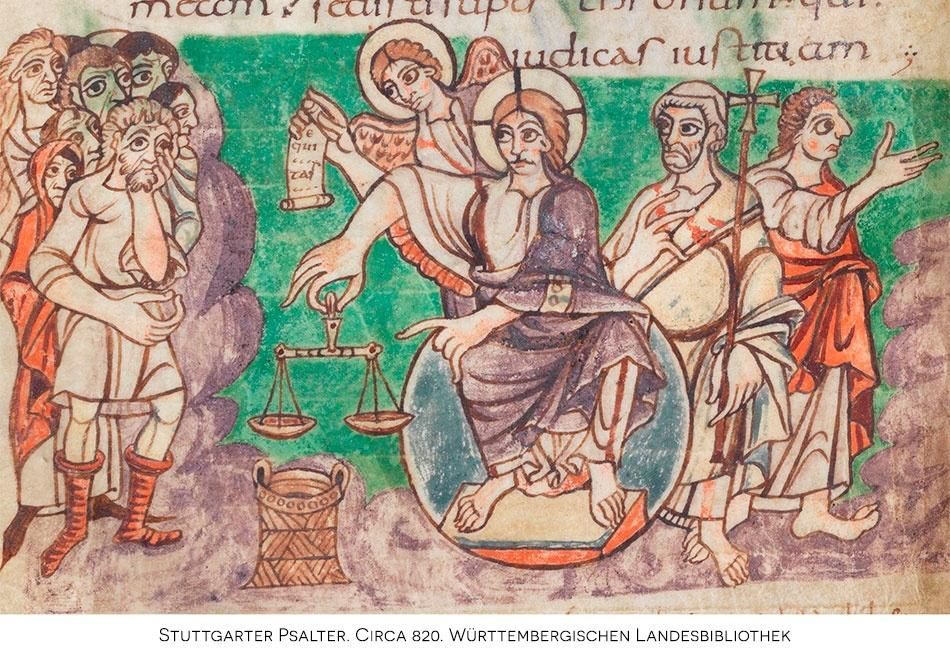 meam sedisti super thronum qui
iudicas iustitiam
STUTTGARTER PSALTER. CIRCA 820. WÜRTTEMBERGISCHEN LANDESBIBLIOTHEK